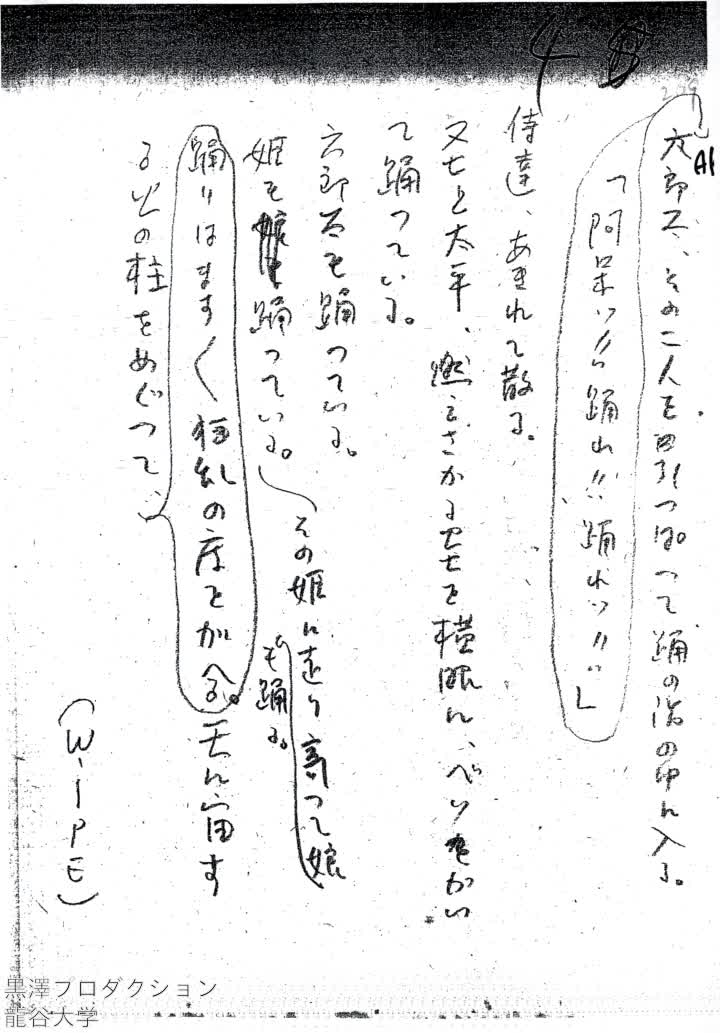 48
A1
六郎太、その二人を引つぱつて踊の渦の中に入る。
「阿呆ッ!! 踊れ!! 踊れッ!!」
侍達、あきれて散る。
又七と太平、燃えさかる を横眼に、べソをかい
て踊つている。
六郎太も踊つている。
姫も踊つている。
その姫に走り寄つて娘
も踊る。
踊りはます〱狂乱の度を加へる。天に宙す
る火の柱をめぐつて、
(WIPE)
黒澤プロダクション
龍谷大学